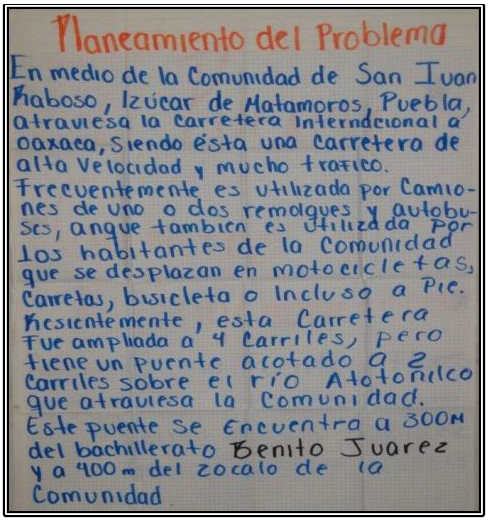 Planeamiento del Problema
En medio de la Comunidad de San Juan
Raboso, Izúcar de Matamoros, Puebla,
atraviesa la carretera Internacional a
Oaxaca, siendo ésta una carretera de
alta Velocidad y mucho trafico.
Frecuentemente es utilizada por Camio-
nes de uno o dos remolques y autobu-
ses, anque tambien es utilizada por
los habitantes de la Comunidad
que se desplazan en motocicletas,
Carretas, bisicleta o Incluso a Pie.
Resientemente, esta Carretera
Fue ampliada a 4 Carriles, pero
tiene un puente acotado a 2
Carriles sobre el río Atotonilco
que atraviesa la Comunidad.
Este puente se Encuentra a 300M
del bachillerato Benito Juarez
y a 400m del zocalo de la
Comunidad